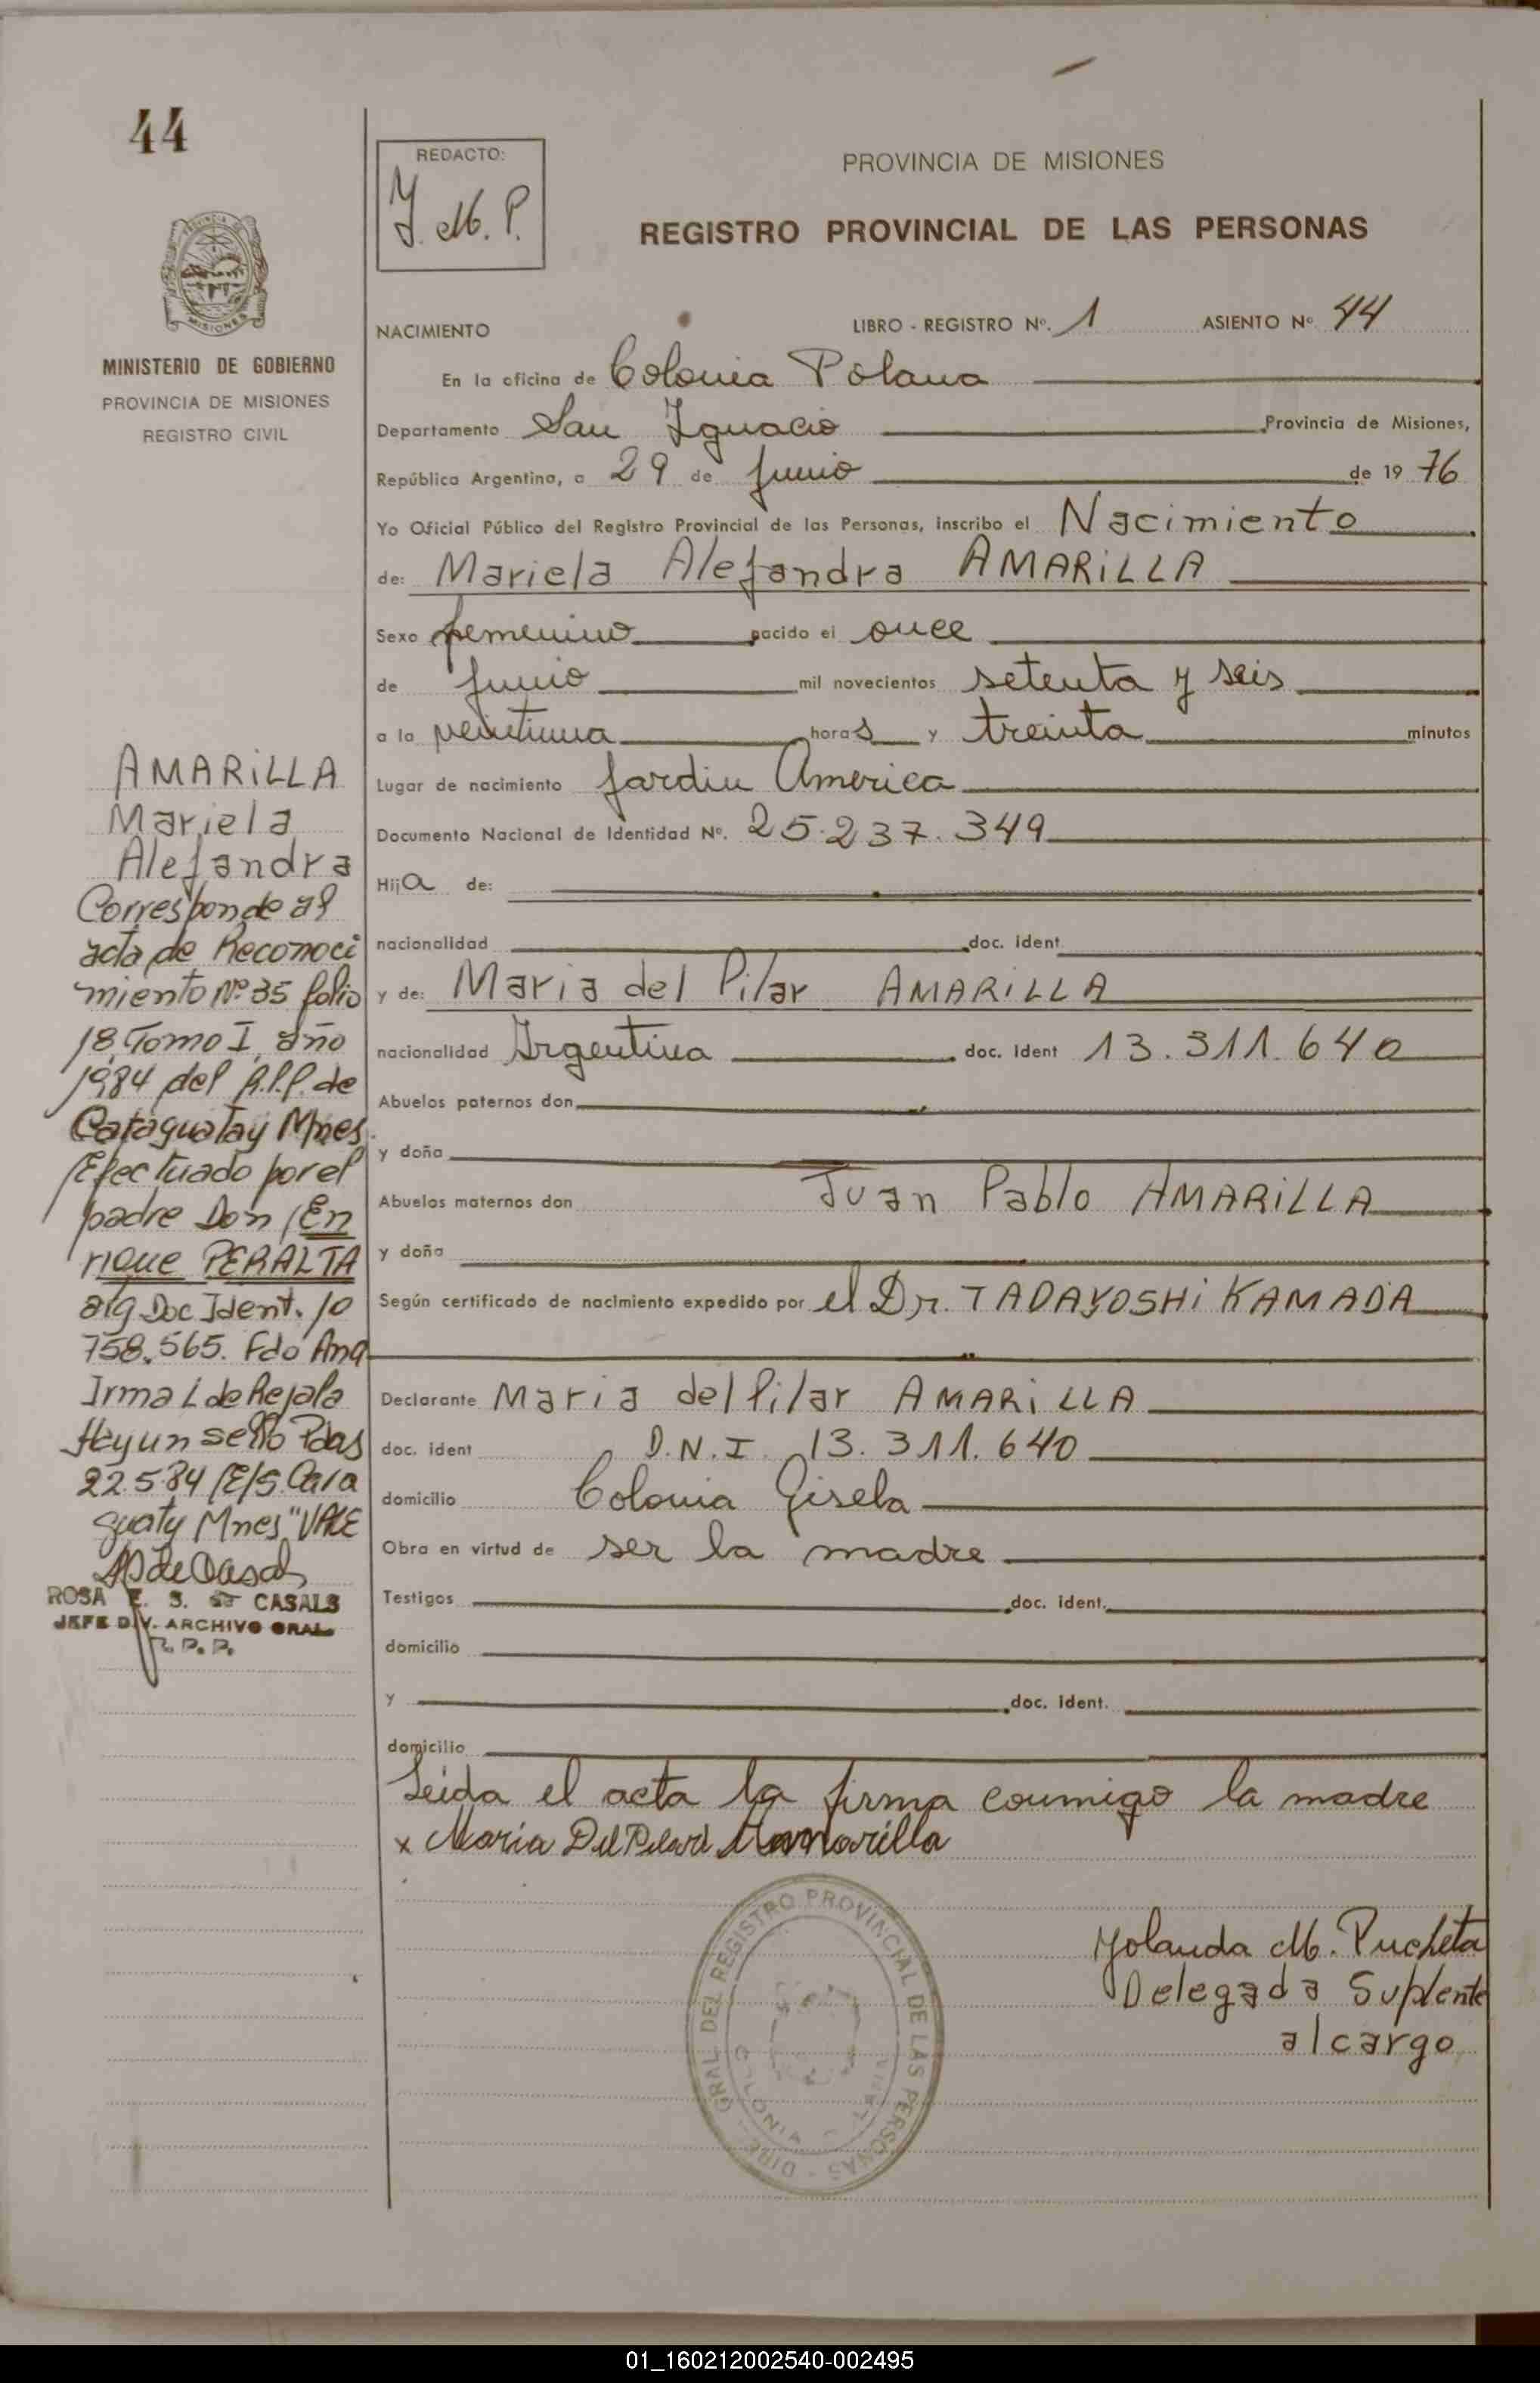 44
REDACTO:
Y. M. P.
PROVINCIA DE MISIONES
REGISTRO PROVINCIAL DE LAS PERSONAS
PROVINCIA DE
MISIONES
MINISTERIO DE GOBIERNO
PROVINCIA DE MISIONES
REGISTRO CIVIL
NACIMIENTO LIBRO - REGISTRO Nº. 1 ASIENTO Nº 44
En la oficina de Colonia Polana
Departamento San Ignacio Provincia de Misiones,
República Argentina, a 29 de Junio de 19 76
Yo Oficial Público del Registro Provincial de las Personas, inscribo el Nacimiento
de: Mariela Alejandra AMARiLLA
Sexo femenino nacido el once
de Junio mil novecientos setenta y seis
a la veintiuna horas y treinta minutos
Lugar de nacimiento Jardin America
Documento Nacional de Identidad Nº. 25.237.349
Hija de:
nacionalidad doc. ident
y de: Maria del Pilar AMARiLLA
nacionalidad Argentina doc. ident 13.311.640
Abuelos paternos don
y doña
Abuelos maternos don Juan Pablo AMARiLLA
y doña
Según certificado de nacimiento expedido por el Dr. TADAYOSHi KAMADA
Declarante Maria del Pilar AMARiLLA
doc. ident D.N.I. 13.311.640
domicilio Colonia Gisela
Obra en virtud de ser la madre
Testigos doc. ident.
domicilio
y doc. ident.
domicilio
Leida el acta la firma conmigo la madre
x Maria Del Pilar Amarilla
Yolanda M. Pucheta
Delegada Suplente
al cargo
DIRE. GRAL DEL REGISTRO PROVINCIAL DE LAS PERSONAS
COLONIA
AMARiLLA
Mariela
Alejandra
Corresponde al
acta de Reconoci
miento Nº 35 folio
18, Tomo I, año
1984 del R.P.P. de
Caraguatay Mnes.
Efectuado por el
padre Don En
rique PERALTA
arg Doc Ident. 10
758.565. Fdo Ana
Irma L de Rejala
Hay un sello Pdas
22.5.84 E/S. Cara
guaty Mnes "VALE
ROSA E. S. de CASALS
JEFE DIV. ARCHIVO GRAL.
R. P. P.
01_160212002540-002495